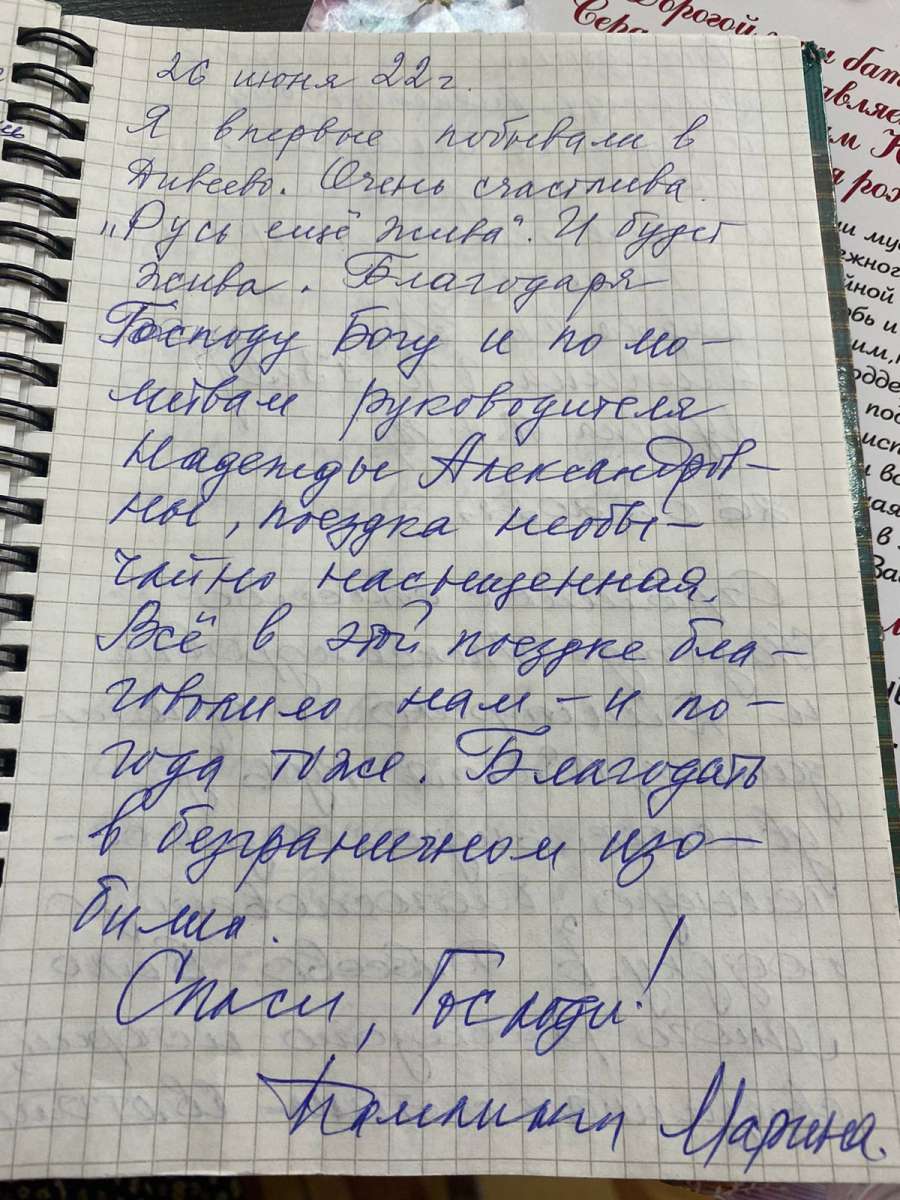 26 июня 22 г.
Я впервые побывали в
Дивеево. Очень счастлива.
„Русь ещё жива“. И будет
жива. Благодаря
Господу Богу и по мо-
литвам руководителя
Надежды Александров-
ны, поездка необы-
чайно насыщенная.
Всё в этой поездке бла-
говолило нам – и по-
года тоже. Благодать
в безграничном изо-
билии.
Спаси, Господи!
Марина.
Дорогой